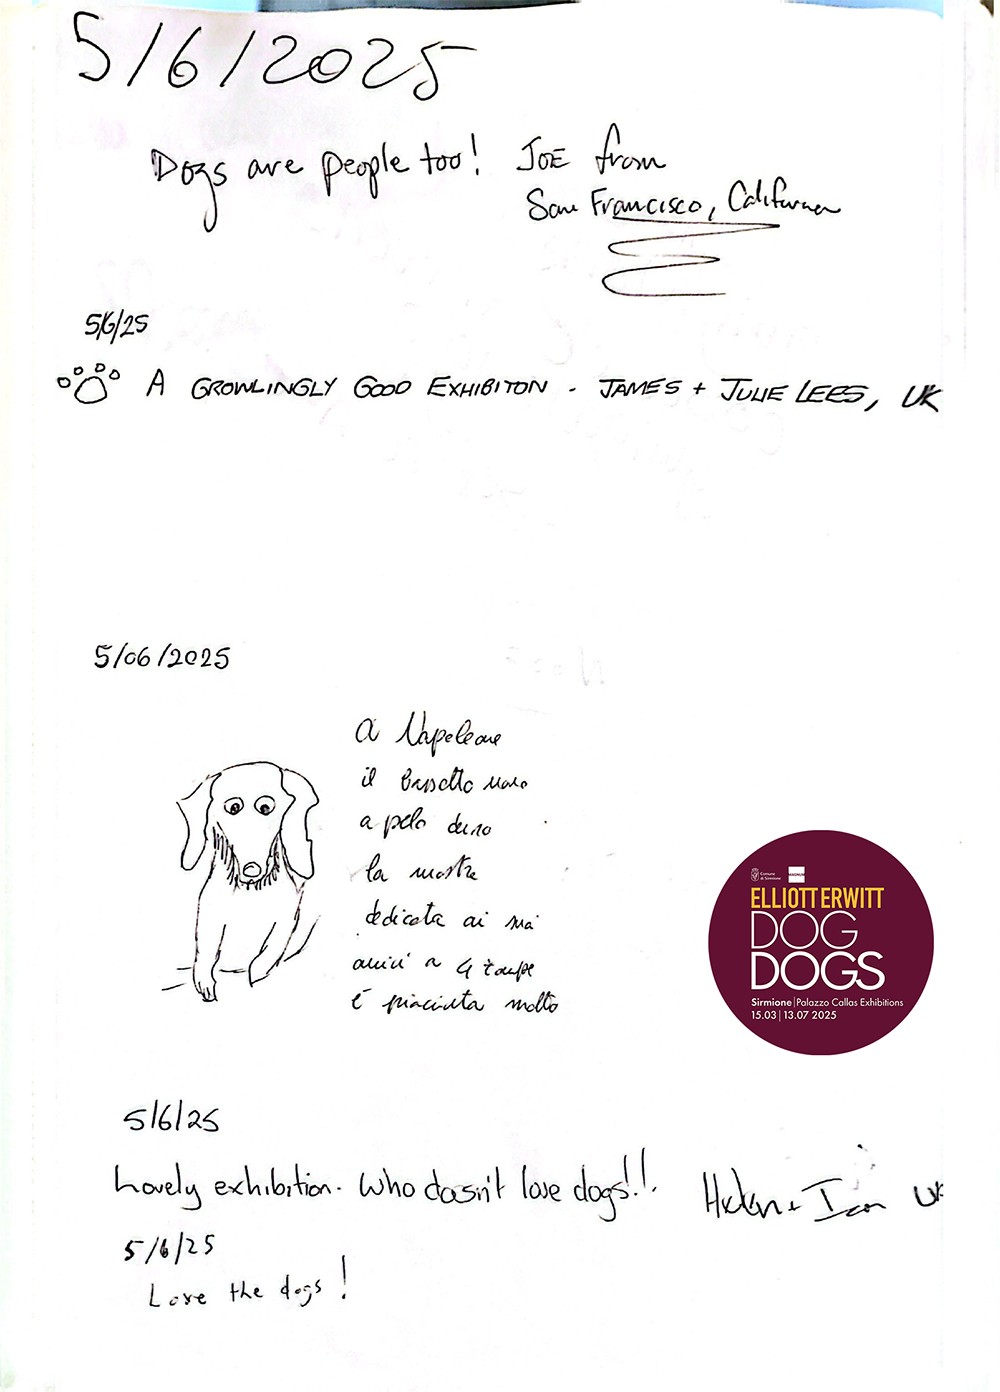 5/6/2025
Dogs are people too! JOE from
San Francisco, California
5/6/25
A GROWLINGLY GOOD EXHIBITON - JAMES + JULIE LEES, UK
5/06/2025
A Napoleone
il bassotto nano
a pelo duro
la mostra
dedicata ai suoi
amici a 4 zampe
è piaciuta molto
Comune
di Sirmione
MAGNUM
ELLIOTT ERWITT
DOG
DOGS
Sirmione | Palazzo Callas Exhibitions
15.03 | 13.07 2025
5/6/25
Lovely exhibition. Who doesn't love dogs!!. Helen + Ian UK
5/6/25
Love the dogs!